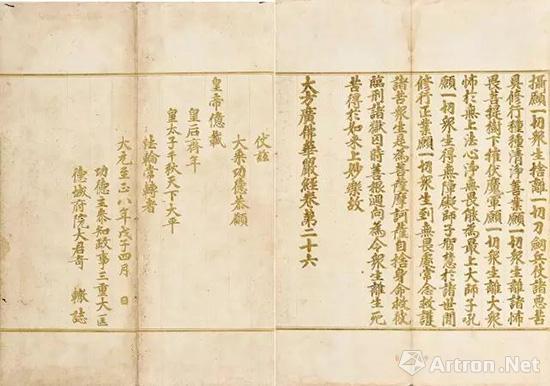 攝願一切衆生捨離一切刀劍兵仗諸惡苦
具修行種種清淨善業願一切衆生離諸怖
畏菩提樹下摧伏魔軍願一切衆生離大衆
怖於無上法心淨無畏能爲最上大師子吼
願一切衆生得無障礙師子智慧於諸世間
修行正業願一切衆生到無畏處常念救護
諸苦衆生是爲菩薩摩訶薩自捨身命救彼
臨刑諸獄囚時善根迴向爲令衆生離生死
苦得於如來上妙樂故
大方廣佛華嚴經卷第二十六
仗玆
大乘功德恭願
皇帝億載
皇后齊年
皇太子千秋天下大平
法輪常轉者
大元至正八年戊子四月 日
功德主叅知政事三重大匡
德城府院大君奇 轍誌
Artron.Net